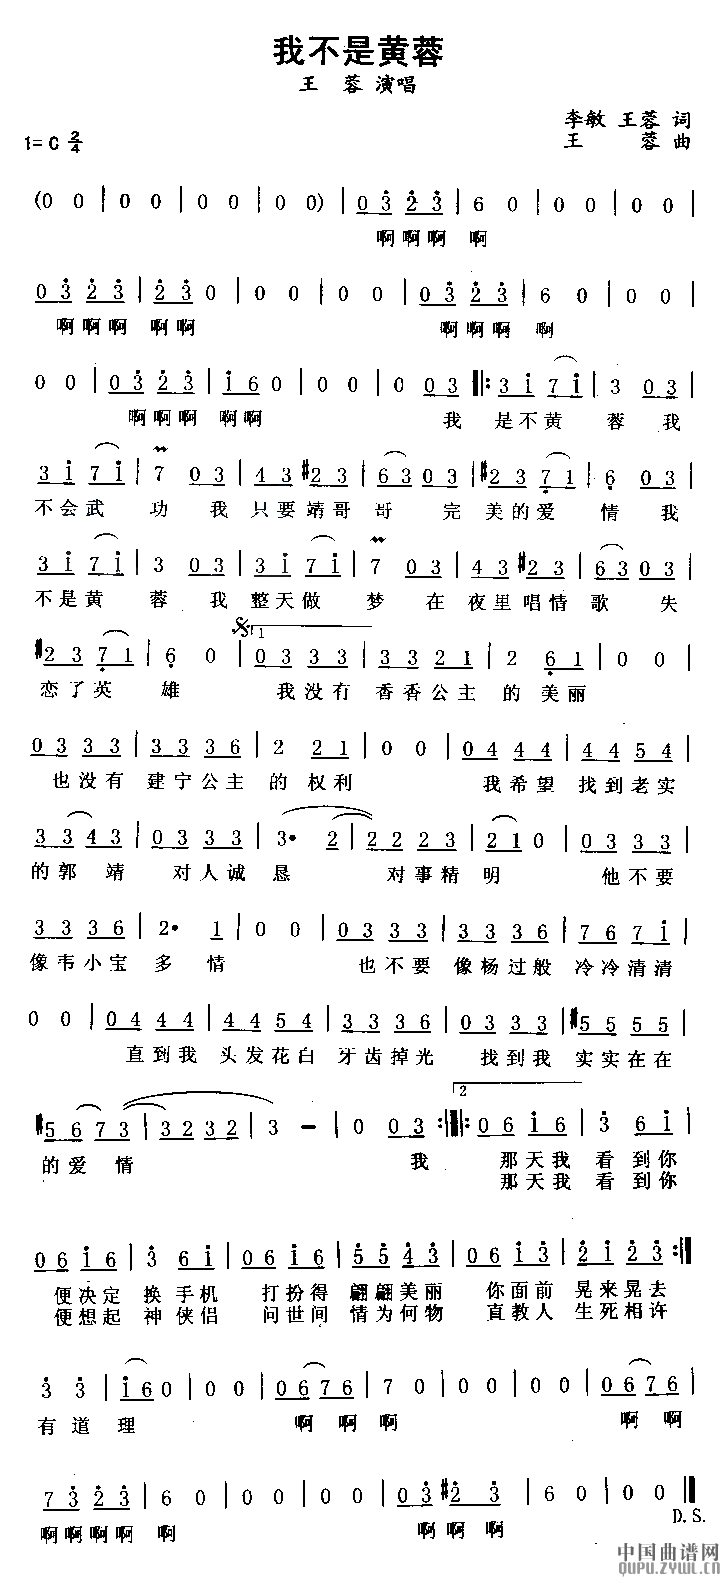 我不是黄蓉
王 蓉 演唱
李敏 王蓉 词
1=C 2/4
王 蓉 曲
(0 0 | 0 0 | 0 0 | 0 0 | 0 0) | 0 3 2 3 | 6 0 | 0 0 | 0 0 |
啊啊啊 啊
0 3 2 3 | 2 3 0 | 0 0 | 0 0 | 0 0 | 0 3 2 3 | 6 0 | 0 0 |
啊啊啊 啊啊 啊啊啊 啊
0 0 | 0 3 2 3 | 1 6 0 | 0 0 | 0 0 3 |: 3 1 7 1 | 3 0 3 |
啊啊啊 啊啊 我 是不黄 蓉 我
3 1 7 1 | 7 0 3 | 4 3 #2 3 | 6 3 0 3 | #2 3 7 1 | 6 0 3 |
不会武 功 我 只要靖哥 哥 完 美的爱 情 我
3 1 7 1 | 3 0 3 | 3 1 7 1 | 7 0 3 | 4 3 #2 3 | 6 3 0 3 |
不是黄 蓉 我 整天做 梦 在 夜里唱情 歌 失
#2 3 7 1 | 6 0 | 1 0 3 3 3 | 3 3 2 1 | 2 6 1 | 0 0 |
恋了英 雄 我没有 香香公主 的 美丽
0 3 3 3 | 3 3 3 6 | 2 2 1 | 0 0 | 0 4 4 4 | 4 4 5 4 |
也没有 建宁公主 的 权利 我希望 找到老实
3 3 4 3 | 0 3 3 3 | 3· 2 | 2 2 2 3 | 2 1 0 | 0 3 3 3 |
的郭 靖 对人诚 恳 对事精 明 他不要
3 3 3 6 | 2· 1 | 0 0 | 0 3 3 3 | 3 3 3 6 | 7 6 7 1 |
像韦小宝 多 情 也不要 像杨过般 冷冷清清
0 0 | 0 4 4 4 | 4 4 5 4 | 3 3 3 6 | 0 4 4 4 | #5 5 5 5 |
直到我 头发花白 牙齿掉光 找到我 实实在在
#5 6 7 3 | 3 2 3 2 | 3 – | 0 0 3 :|: 2 0 6 1 6 | 3 6 1 |
的爱 情 我 那天我 看 到你
那天我 看 到你
0 6 1 6 | 3 6 1 | 0 6 1 6 | 5 5 4 3 | 0 6 1 6 | 2 3 2 3 :|
便决定 换 手机 打扮得 翩翩美丽 你面前 晃来晃去
便想起 神 侠侣 问世间 情为何物 直教人 生死相许
3 3 | 1 6 0 | 0 0 | 0 6 7 6 | 7 0 | 0 0 | 0 0 | 0 6 7 6 |
有 道 理 啊 啊 啊 啊 啊
7 3 2 3 | 6 0 | 0 0 | 0 0 | 0 3 #2 3 | 6 0 | 0 0 | 0 0 ‖
啊啊啊啊 啊 啊啊 啊
D.S.
中国曲谱网
QUPU.ZYWL.CN